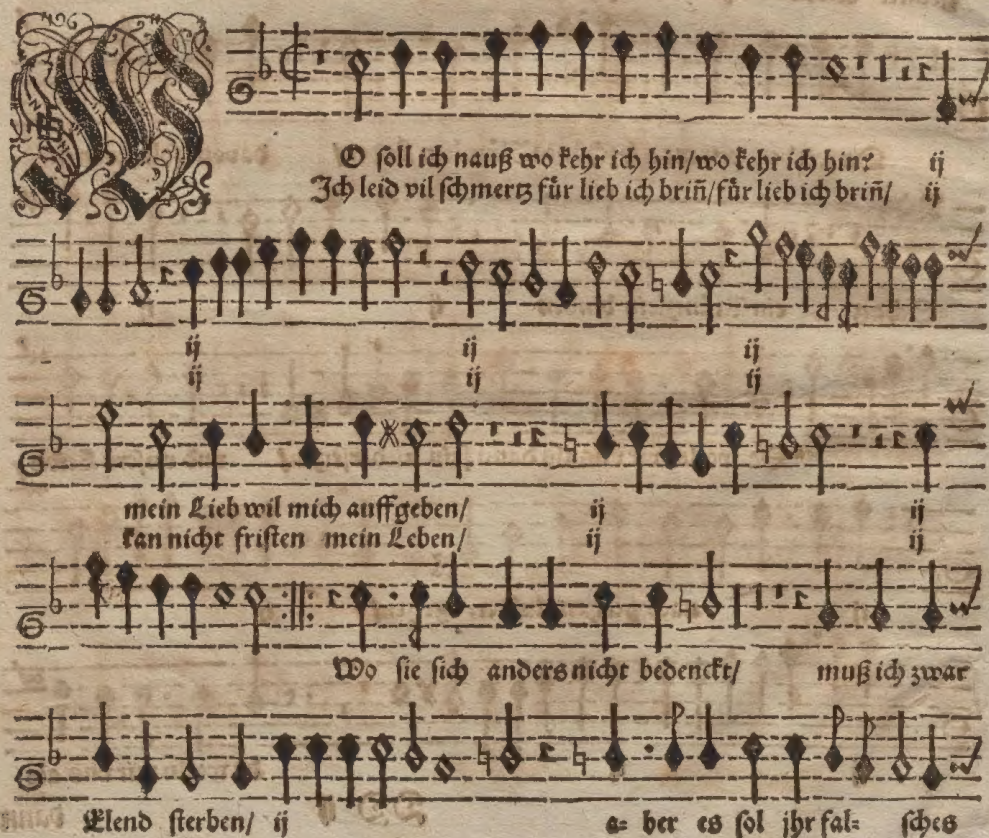 WO soll ich nauß wo kehr ich hin/wo kehr ich hin? ij
Ich leid vil schmertz für lieb ich briñ/für lieb ich briñ/ ij
ij ij ij
ij ij ij
mein Lieb wil mich auffgeben/ ij ij
kan nicht fristen mein Leben/ ij ij
Wo sie sich anders nicht bedenckt/ muß ich zwar
Elend sterben/ ij a= ber es sol jhr fal= sches